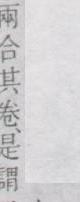 兩合其卷是謂